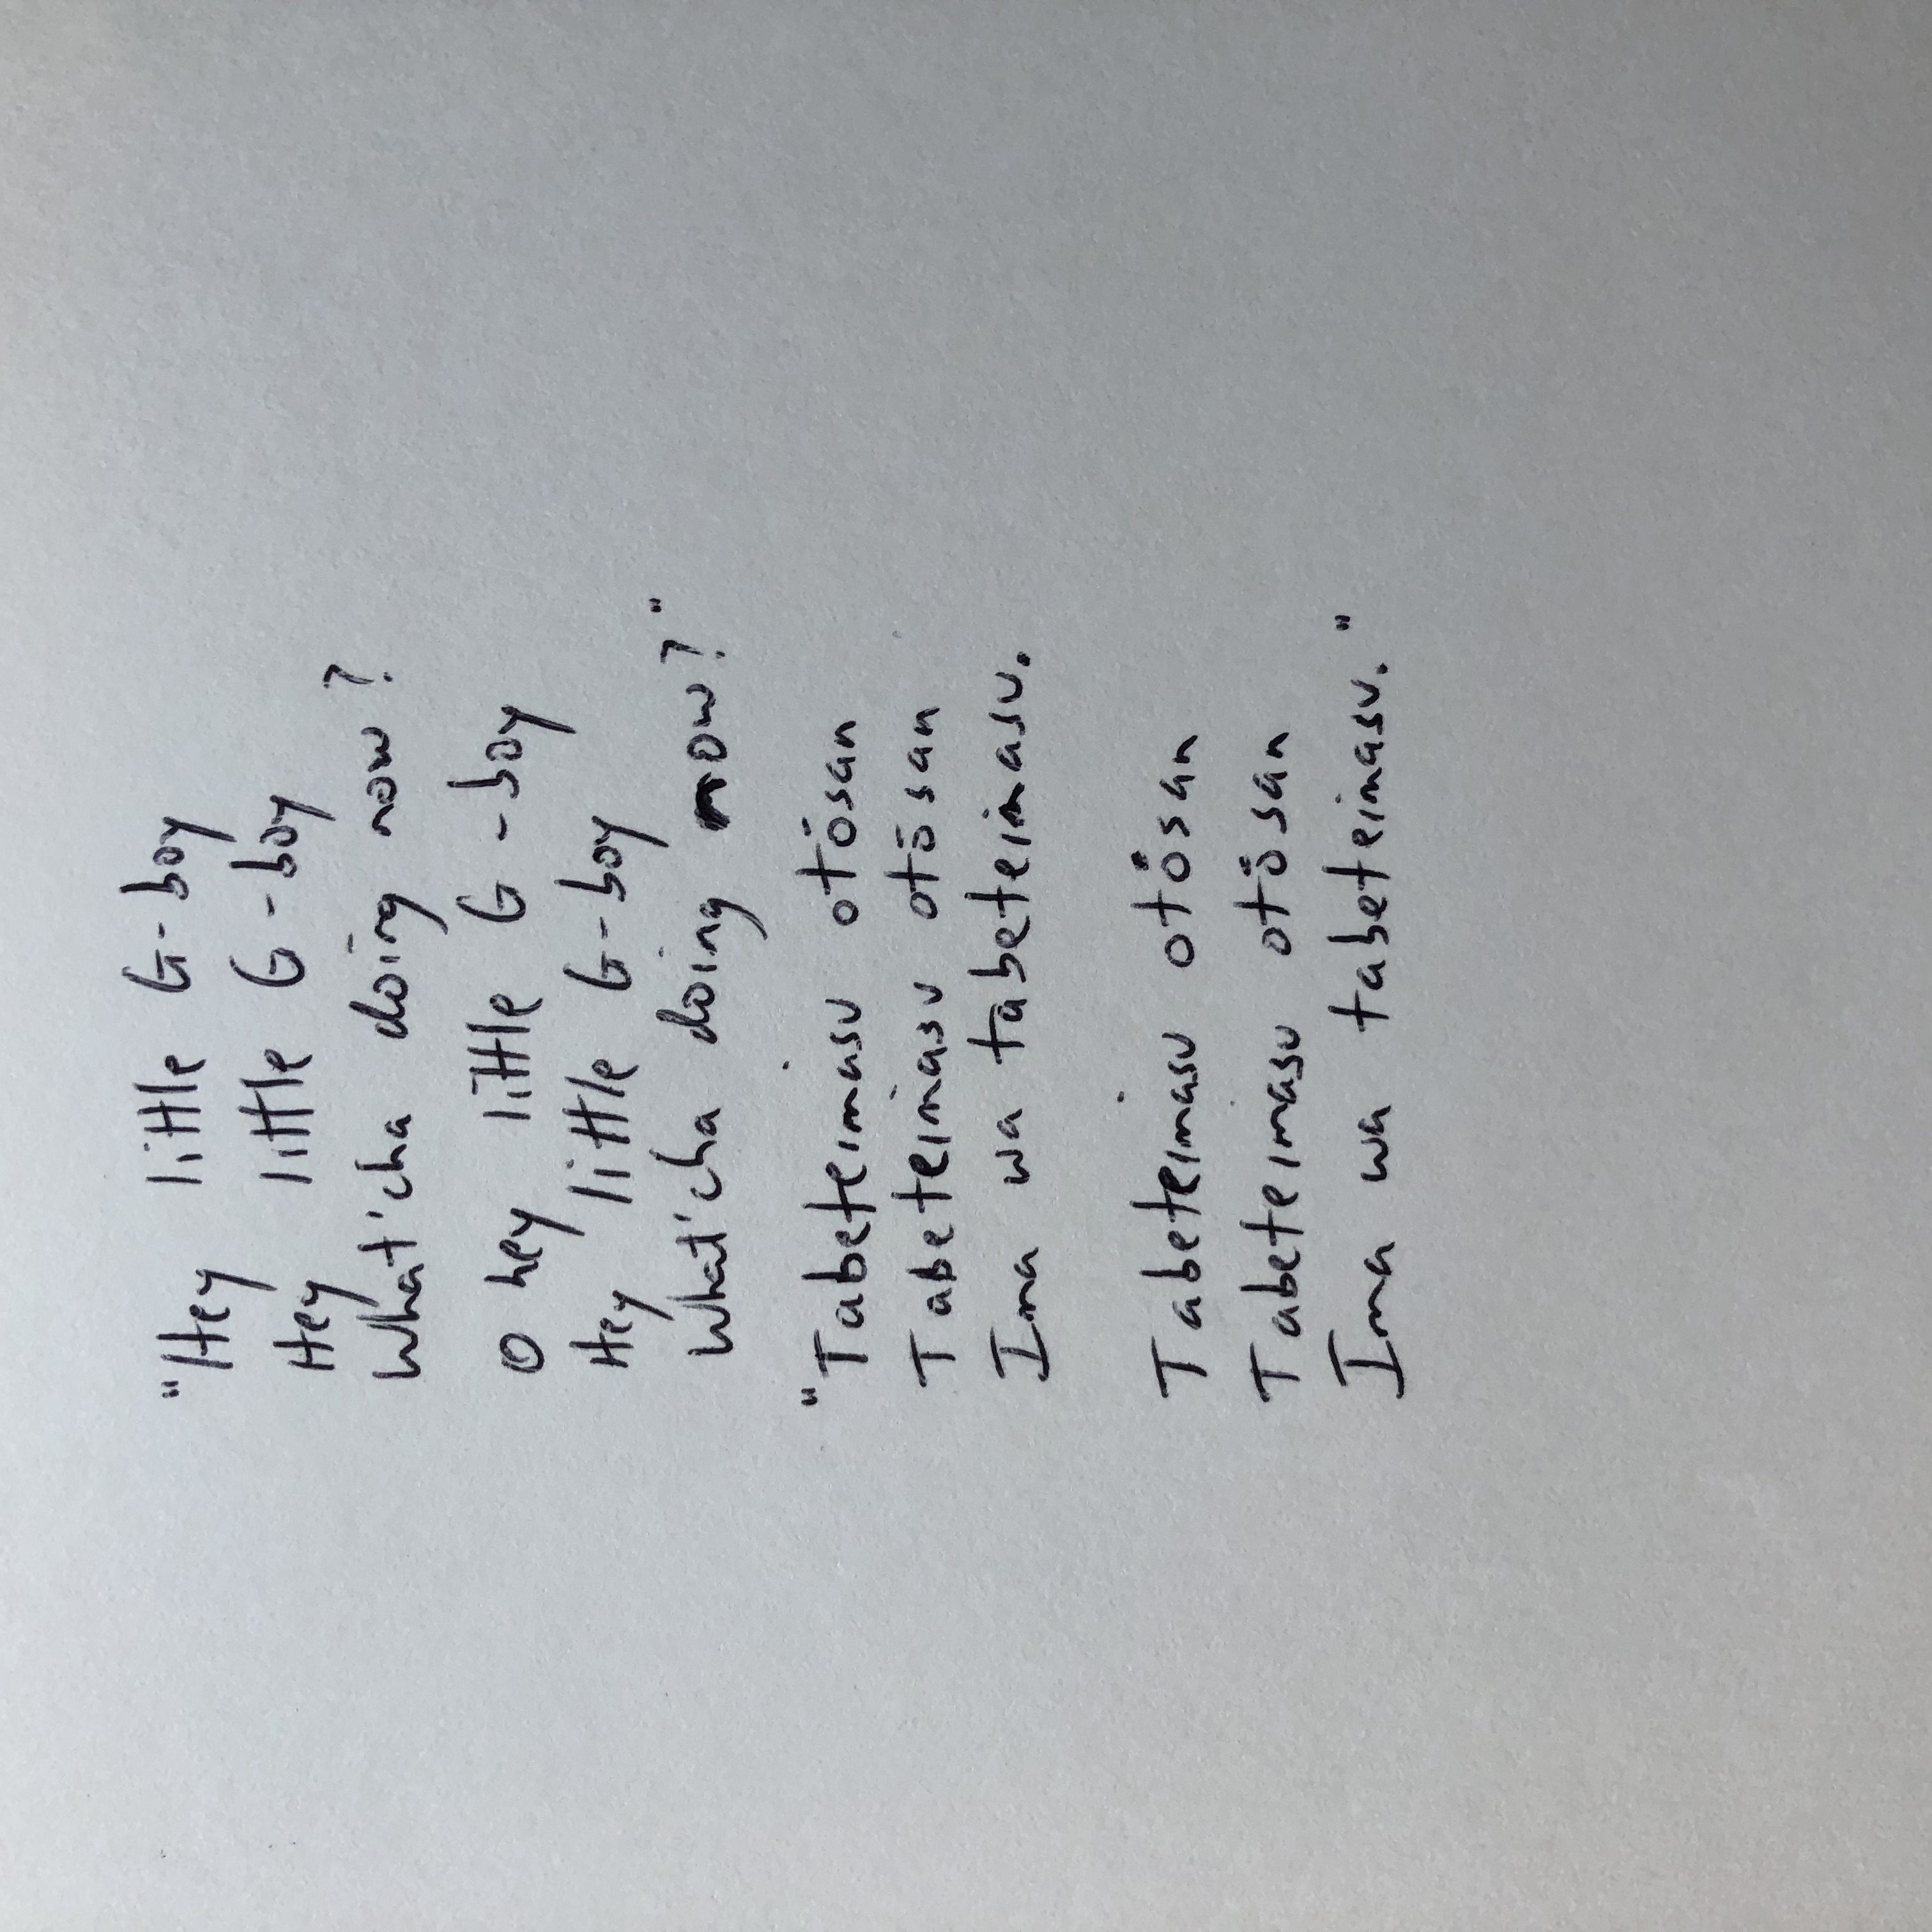 "Hey little G-boy
Hey little G-boy
What'cha doing now?
O hey little G-boy
Hey little G-boy
What'cha doing now?"
"Tabeteimasu otōsan
Tabeteimasu otōsan
Ima wa tabeteimasu.
Tabeteimasu otōsan
Tabeteimasu otōsan
Ima wa tabeteimasu."